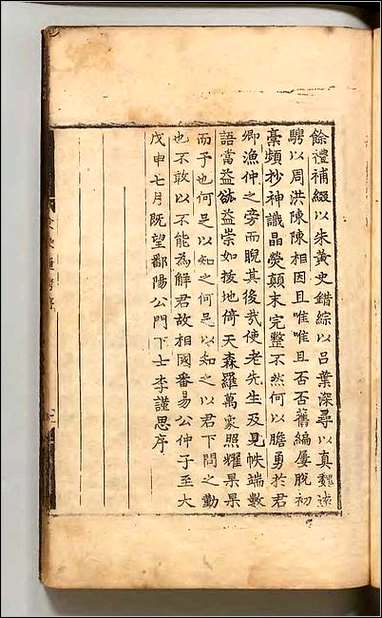 餘禮補綴以朱黃史錯綜以呂葉深尋以真魏遠
騁以周洪陳陳相因且唯唯且否否舊編屢脫初
藁頻抄神識晶熒顛末完整不然何以膽勇於君
卿漁仲之旁而睨其後哉使老先生及見帙端數
語當益欲益崇如拔地倚天森羅萬家照耀果果
而子也何足以知之何足以知之以君下問之勤
也不敢以不能為解君故相國番易公仲子至大
戊申七月既望鄱陽公門下士李謹思序